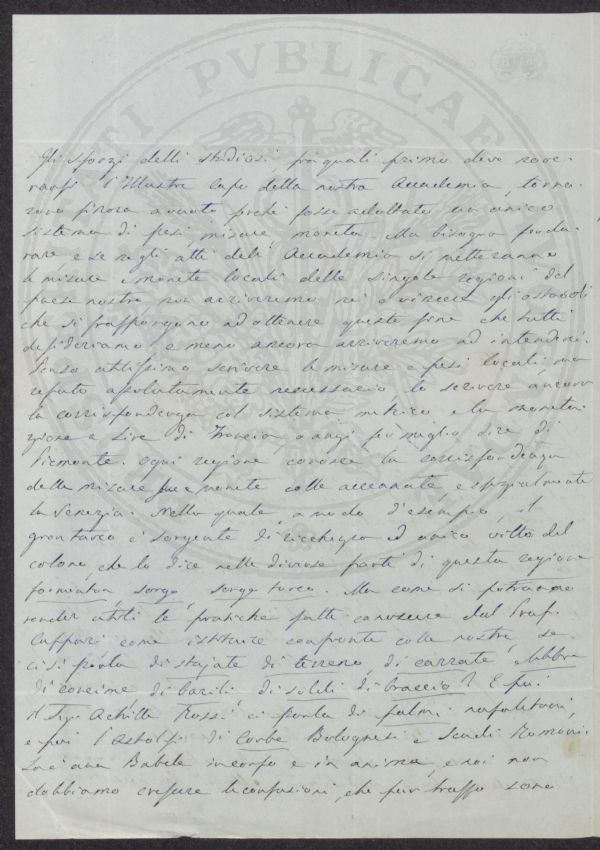 Gli sforzi delli studiosi fra quali primo deve nove-
rarsi l'Illustre capo della nostra Accademia, torna-
rono finora a vuoto perchè fosse adottato un unico
sistema di pesi, misure, moneta. Ma bisogna perdu-
rare e se negli atti dell'Accademia si metteranno
le misure e monete locali delle singole regioni del
paese nostro, non arriveremo nè a vincere gli ostacoli
che si frappongono ad ottenere questo fine che tutti
desideriamo e meno ancora arriveremo ad intenderci.
Penso utilissimo scrivere le misure e pesi locali, ma
reputo assolutamente necessario lo scrivere ancora
la corrispondenza col sistema metrico e la moneta-
zione a Lire di Francia, o anzi per meglio dire di
Piemonte. Ogni regione conosce la corrispondenza
delle misure sue e monete colle accennate, e specialmente
la Venezia. Nella quale, a modo d'esempio, il
gran turco è sorgente di ricchezza ed unico vitto del
colono, che lo dice nelle diverse parti di questa regione
formenton, sorgo, sorgo turco. Ma come si potranno
render utili le pratiche fatte conoscere dal Prof.
Cuppari come istituire confronto colle nostre, se
ci si parla di stajate di terreno, di carrate, e libbre
di concime di barili di soldi di braccio? E poi
il Sig. Achille Rossi ci parla di palmi napolitani,
e poi l'Astolfi di Corbe Bolognesi e Scudi Romani.
Sarà una Babele in corpo e in anima, e noi non
dobbiamo crescere le confusioni, che pur troppo sono
PVBLICAE